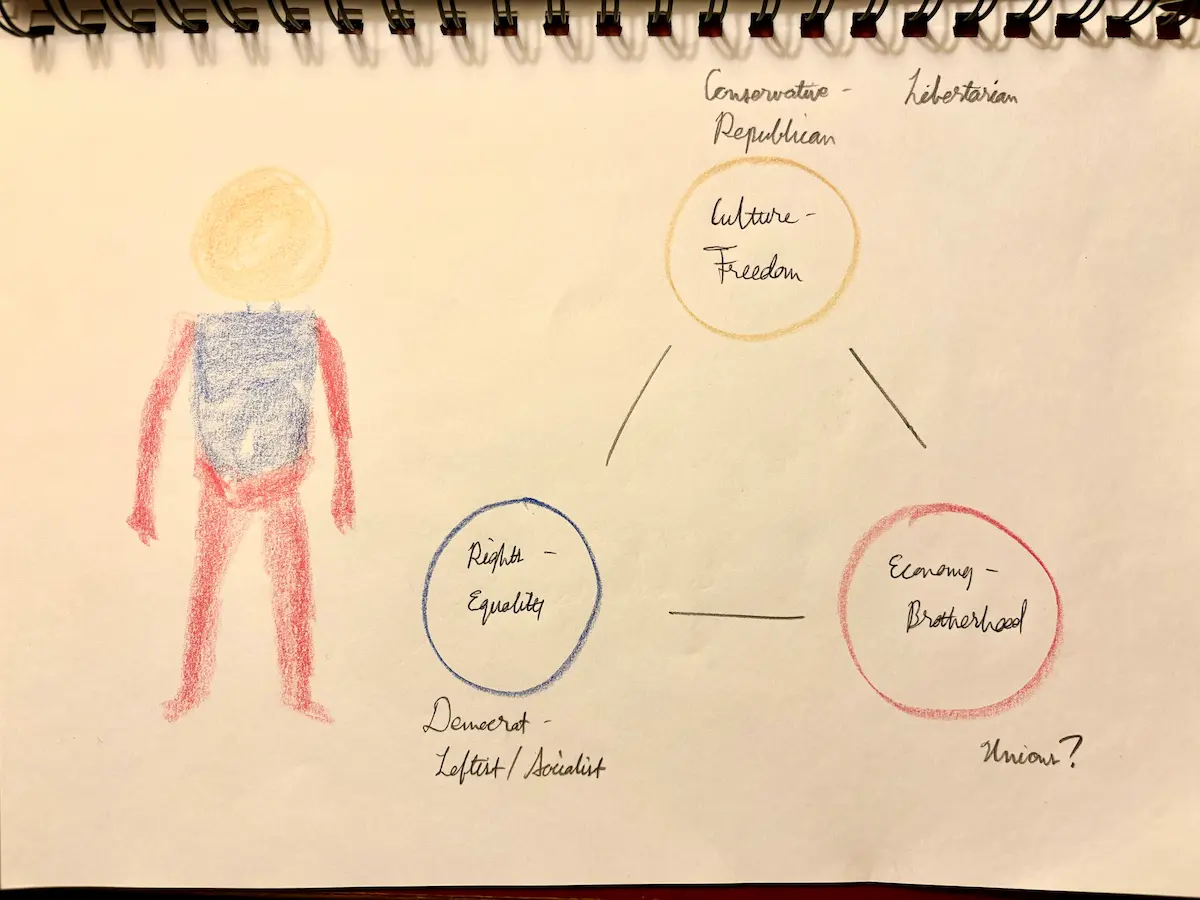 Conservative -
Republican
Libertarian
Culture -
Freedom
Rights -
Equality
Economy -
Brotherhood
Democrat -
Leftist / Socialist
Unions?